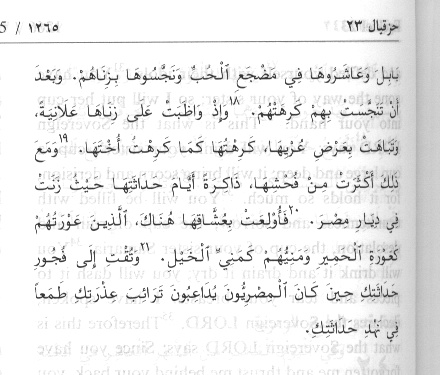 حزقيال ٢٣
١٢٦٥ / 5
بَابِلَ وَعَاشَرُوهَا فِي مَضْجَعِ ٱلْحُبِّ وَنَجَّسُوهَا بِزِنَاهُمْ. وَبَعْدَ
أَنْ تَنَجَّسَتْ بِهِمْ كَرِهَتْهُمْ. ١٨وَإِذْ وَاظَبَتْ عَلَى زِنَاهَا عَلَانِيَةً،
وَتَبَاهَتْ بِعَرْضِ عُرْيِهَا، كَرِهْتُهَا كَمَا كَرِهْتُ أُخْتَهَا. ١٩وَمَعَ
ذَلِكَ أَكْثَرَتْ مِنْ فُحْشِهَا، ذَاكِرَةً أَيَّامَ حَدَاثَتِهَا حَيْثُ زَنَتْ
فِي دِيَارِ مِصْرَ. ٢٠فَأُولِعَتْ بِعُشَّاقِهَا هُنَاكَ، ٱلَّذِينَ عَوْرَتُهُمْ
كَعَوْرَةِ ٱلْحَمِيرِ وَمَنِيُّهُمْ كَمَنِيِّ ٱلْخَيْلِ. ٢١وَتُقْتِ إِلَى فُجُورِ
حَدَاثَتِكِ حِينَ كَانَ ٱلْمِصْرِيُّونَ يُدَاعِبُونَ تَرَائِبَ عِذْرَتِكِ طَمَعاً
فِي نَهْدِ حَدَاثَتِكِ.